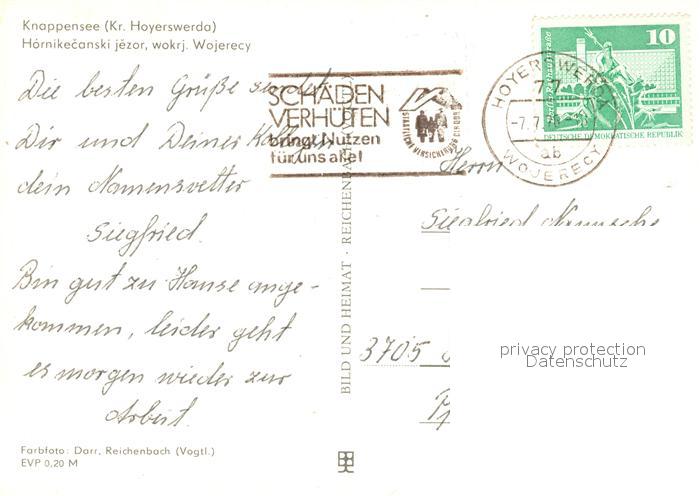 Knappensee (Kr. Hoyerswerda)
Hórnikečanski jězor, wokrj. Wojerecy
Die besten Grüße sendet
Dir und Deiner Kollegen
dein Namensvetter
Siegfried.
Bin gut zu Hause ange-
kommen, leider geht
es morgen wieder zur
Arbeit.
Farbfoto: Darr, Reichenbach (Vogtl.)
EVP 0,20 M
SCHÄDEN
VERHÜTEN
bringt Nutzen
für uns alle!
STAATLICHE VERSICHERUNG DER DDR
BILD UND HEIMAT · REICHENBACH
HOYERSWERDA
77
-7.7.
ab
WOJERECY
10
DEUTSCHE DEMOKRATISCHE REPUBLIK
Herrn
Siegfried
3705
privacy protection
Datenschutz